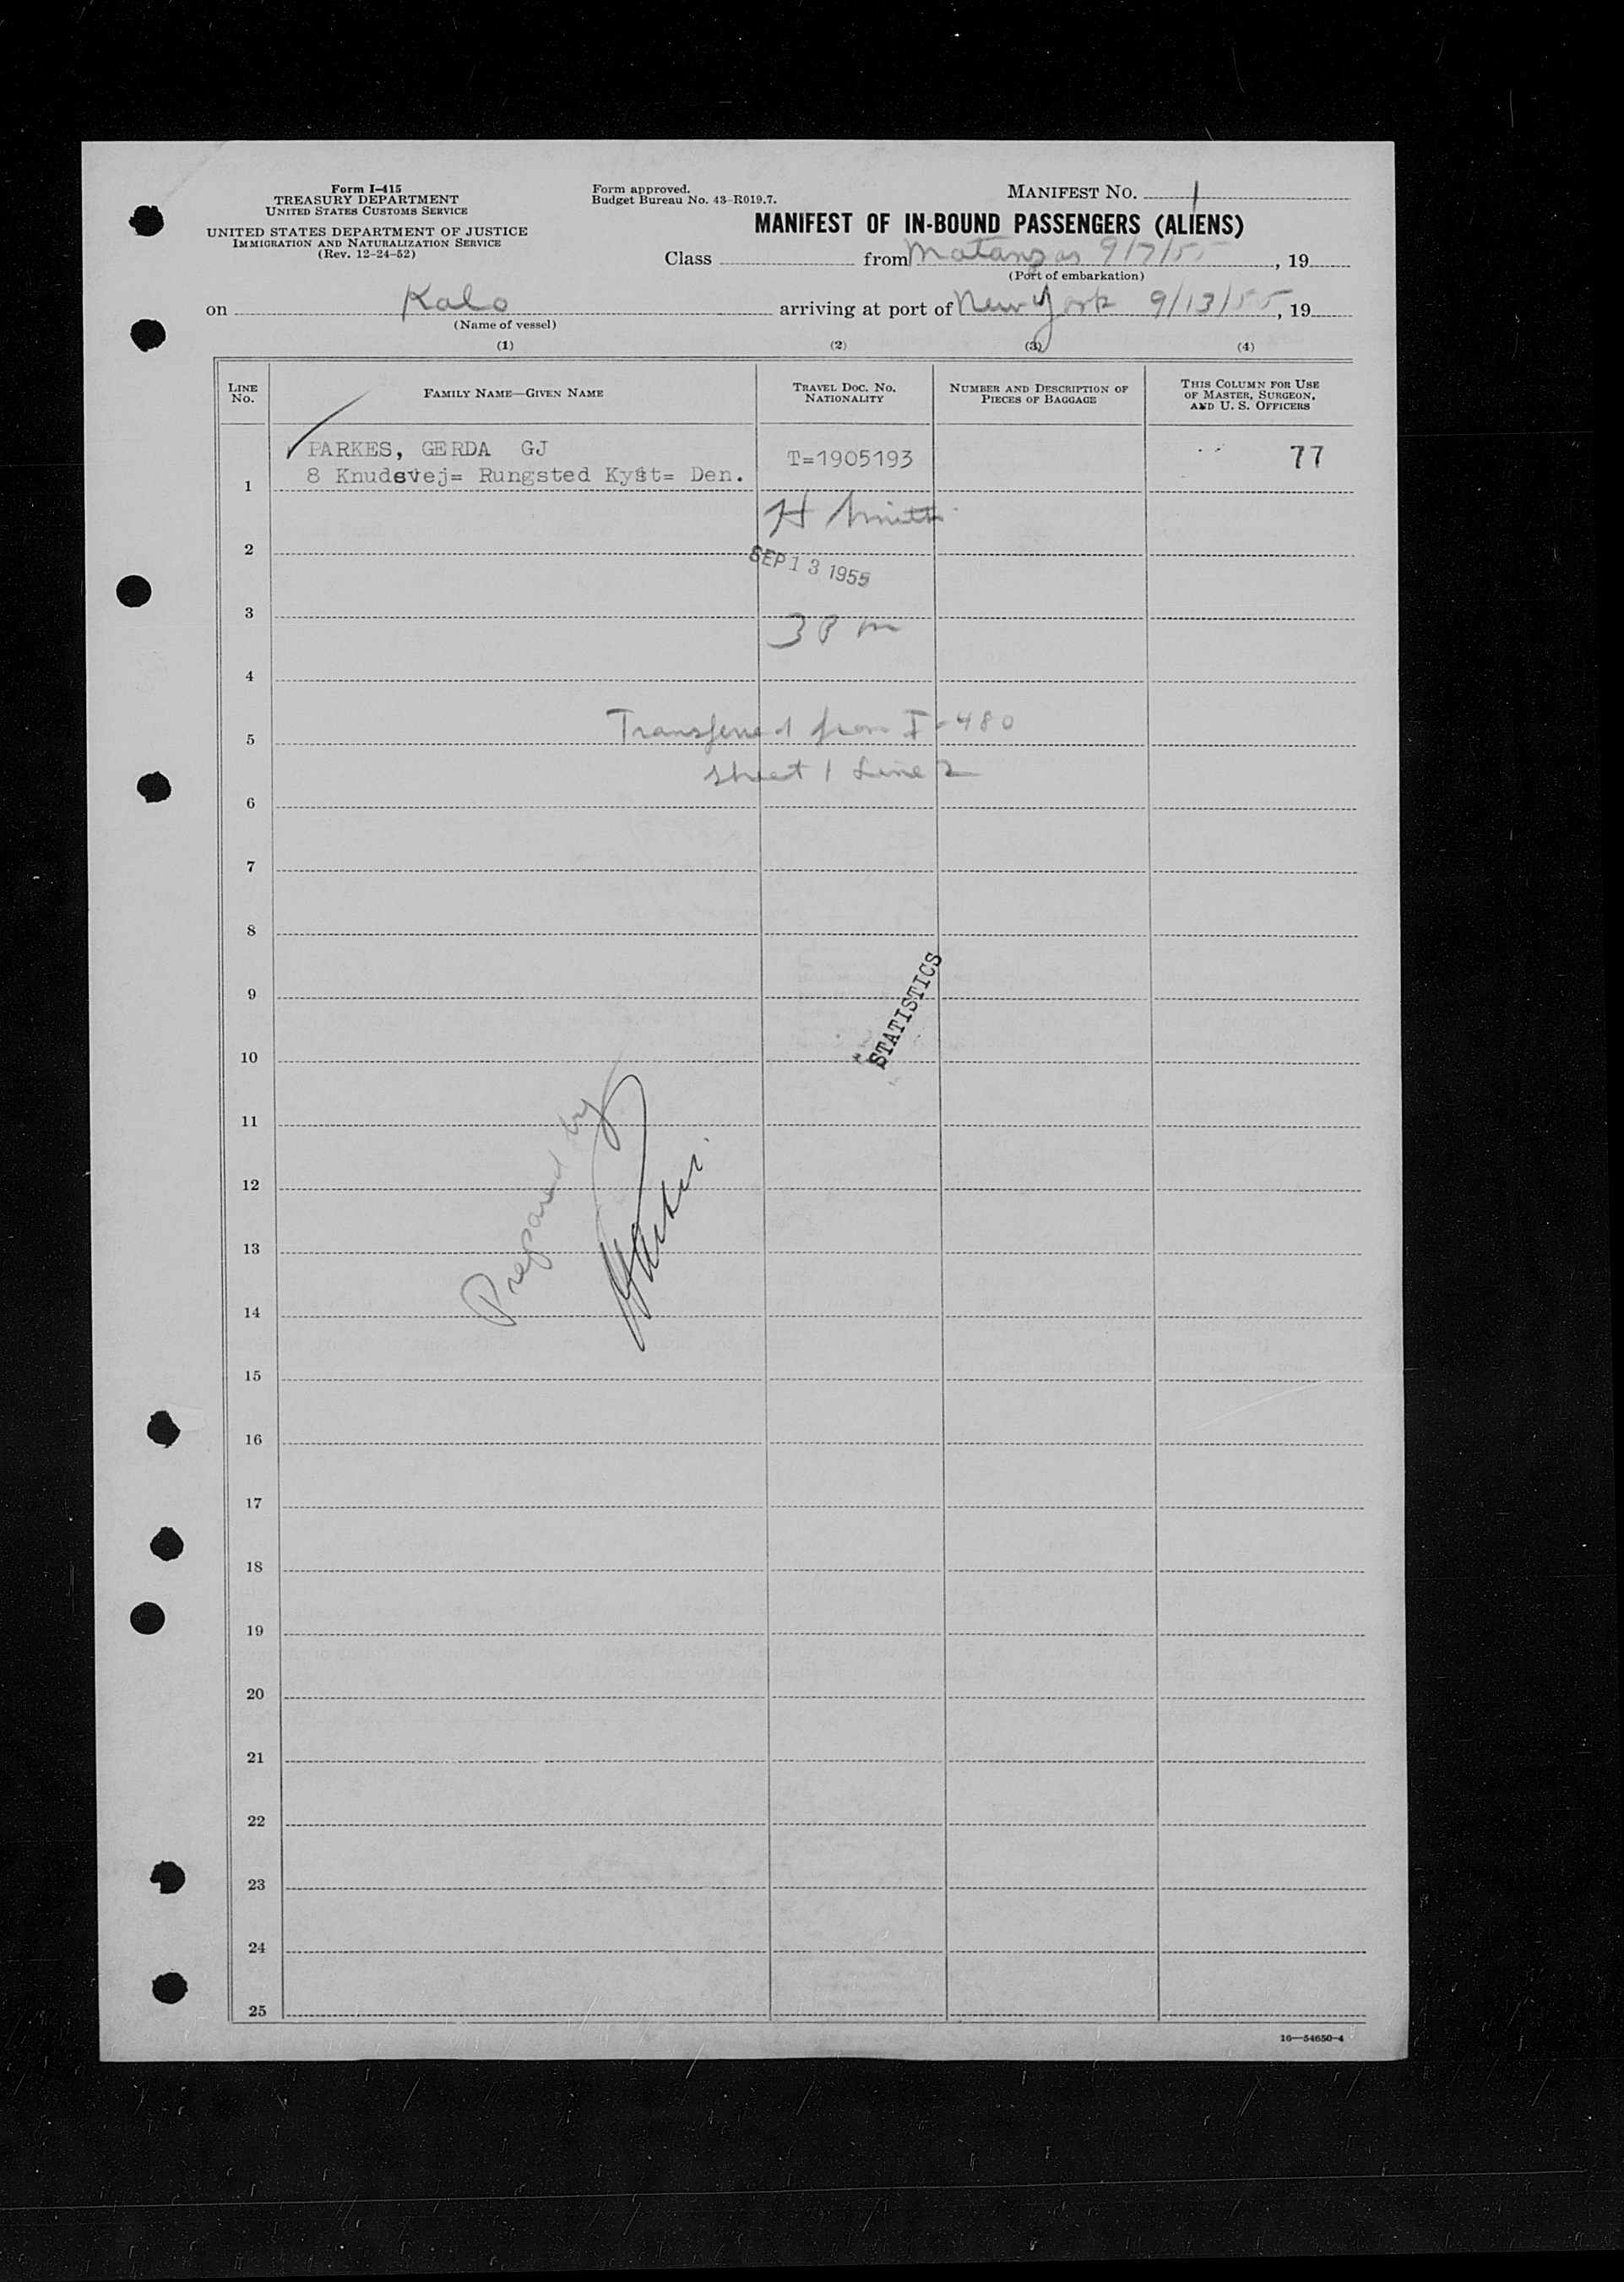 Form I-415
TREASURY DEPARTMENT
UNITED STATES CUSTOMS SERVICE
UNITED STATES DEPARTMENT OF JUSTICE
IMMIGRATION AND NATURALIZATION SERVICE
(Rev. 12-24-52)
Form approved.
Budget Bureau No. 43-R019.7.
MANIFEST NO. 1
MANIFEST OF IN-BOUND PASSENGERS (ALIENS)
Class from Matanzas 9/7/55, 19
(Port of embarkation)
on Kalo arriving at port of New York 9/13/55, 19
(Name of vessel)
(1) (2) (3) (4)
LINE NO.
FAMILY NAME—GIVEN NAME
TRAVEL DOC. NO. NATIONALITY
NUMBER AND DESCRIPTION OF PIECES OF BAGGAGE
THIS COLUMN FOR USE OF MASTER, SURGEON, AND U. S. OFFICERS
PARKES, GERDA GJ T=1905193 77
1 8 Knudsvej= Rungsted Kyst= Den.
H Smith
2
SEP 13 1955
3
3 P m
4
Transferred from I-480
5
sheet 1 Line 2
6
7
8
9
STATISTICS
10
11
Prepared by
12
13
14
15
16
17
18
19
20
21
22
23
24
25
16—54650-4